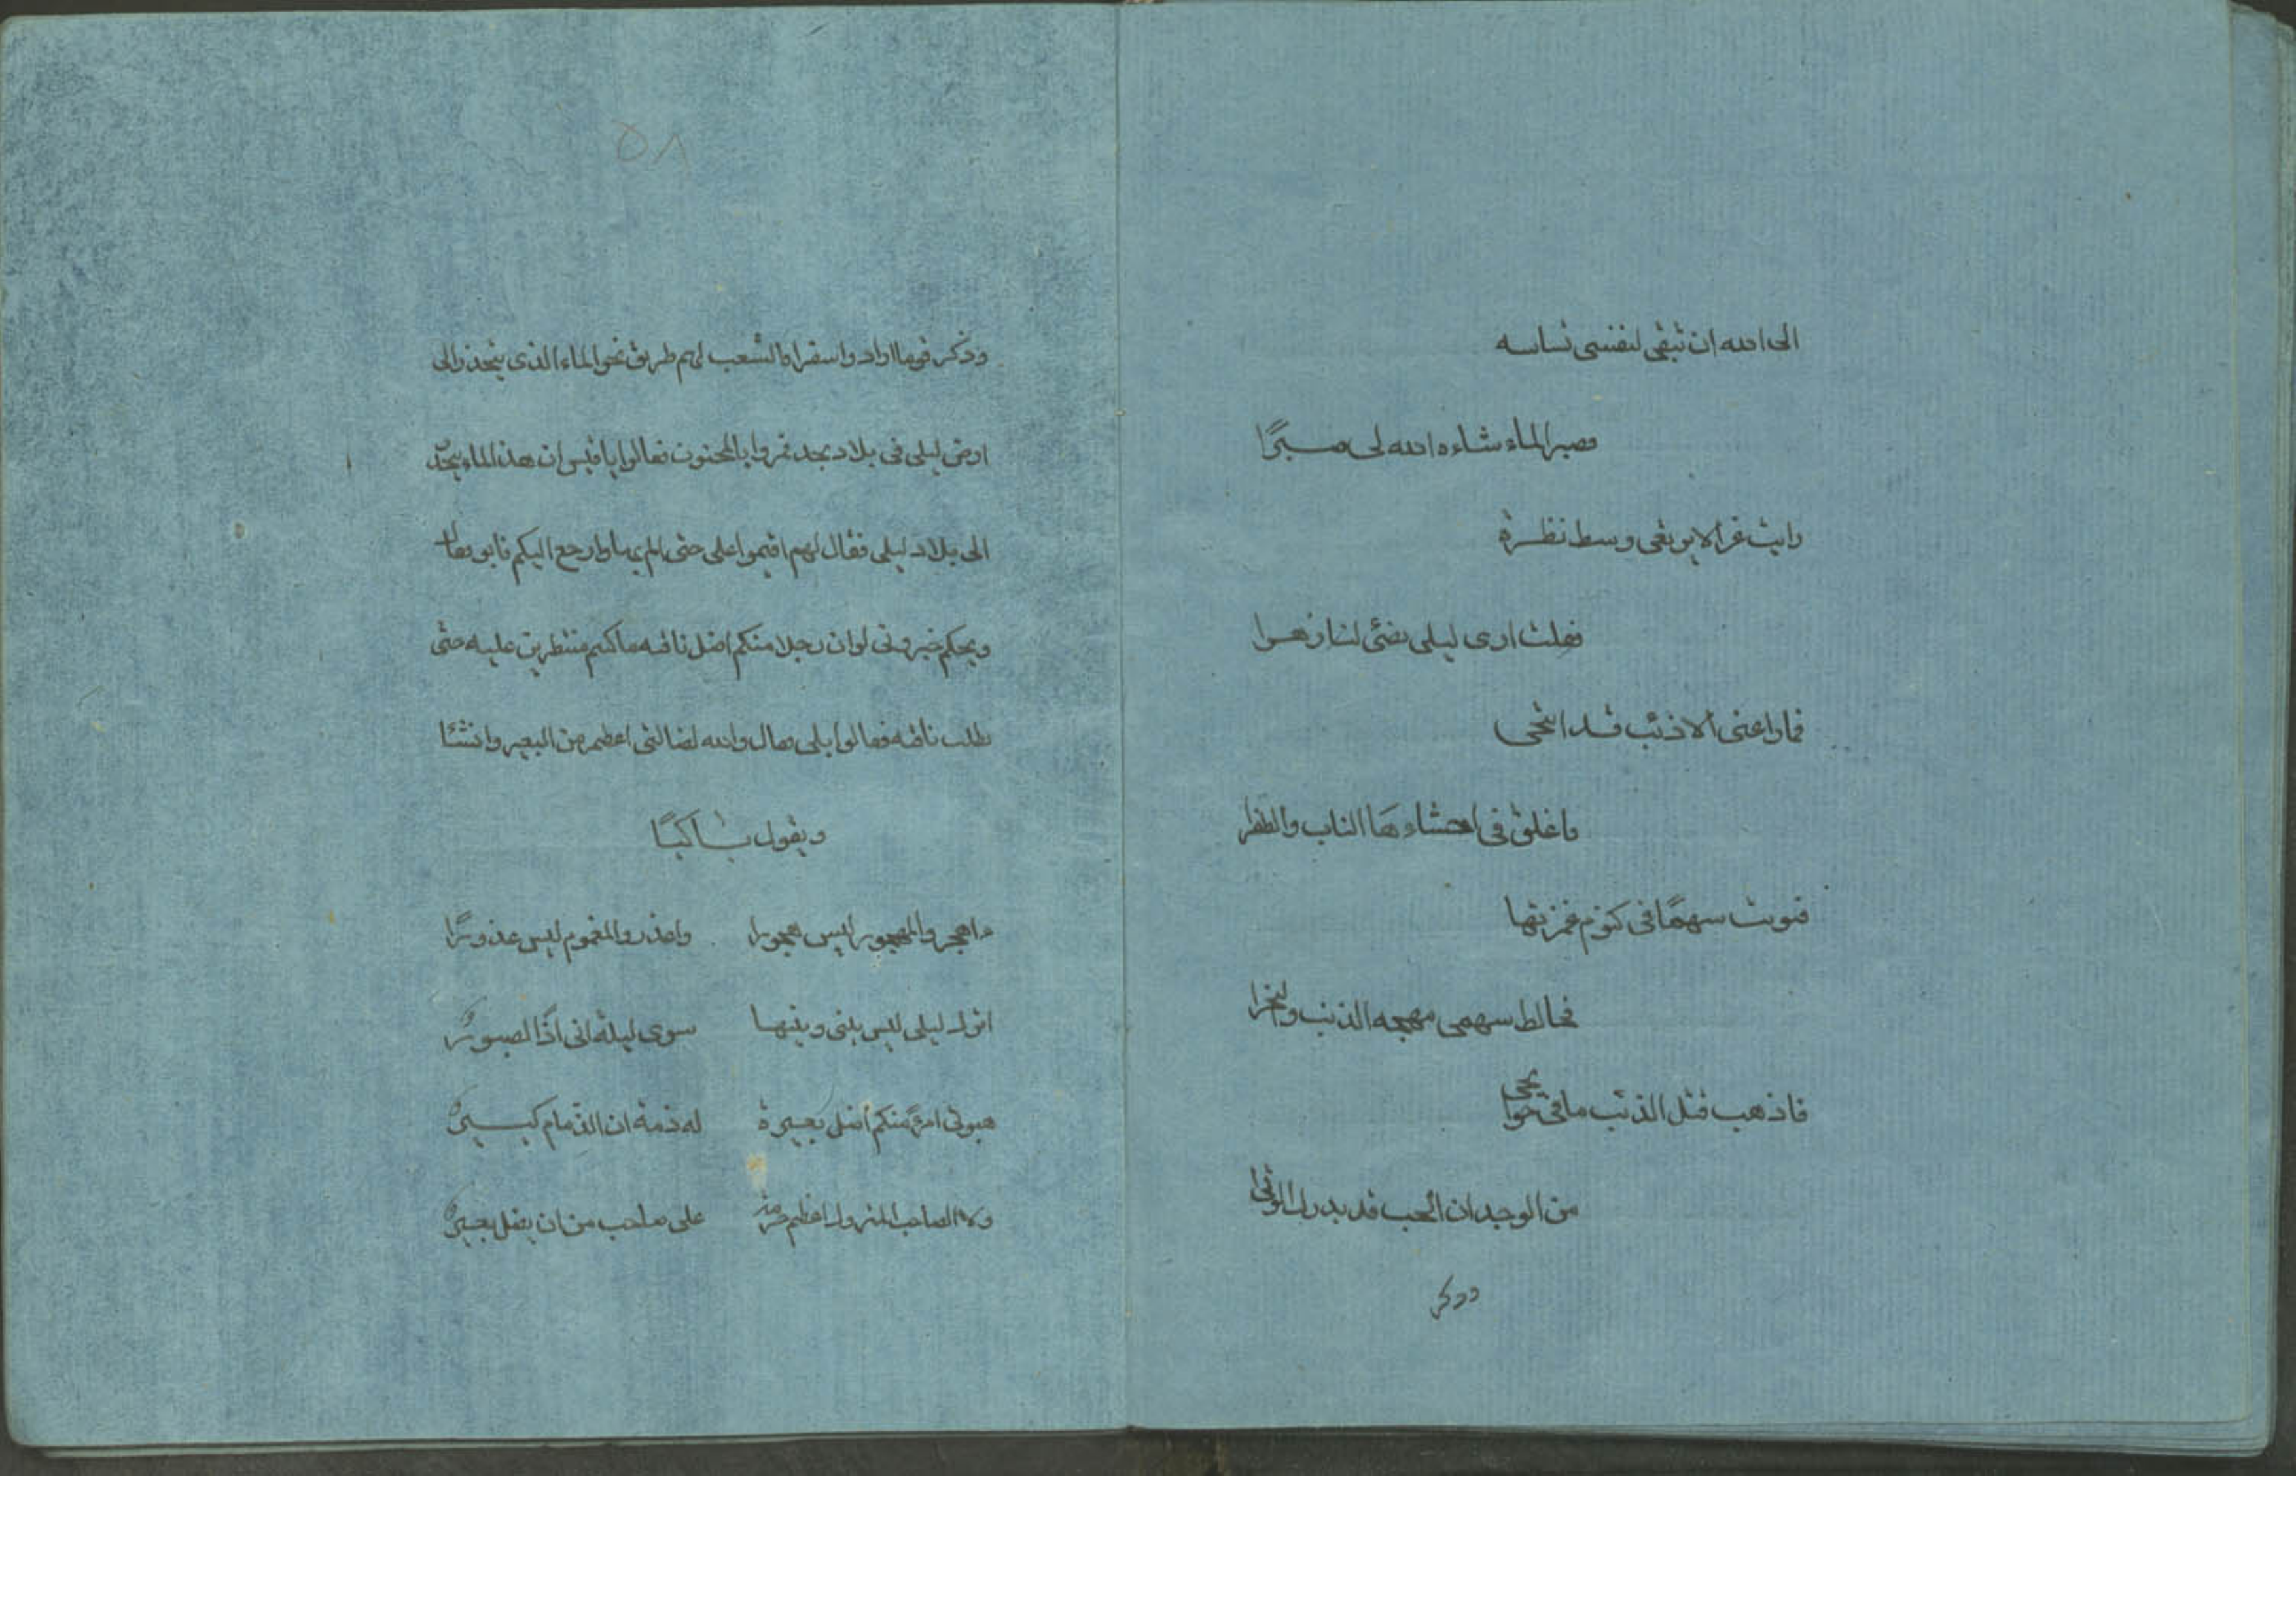 الى الله ان تبقى لنفسى بشاشه
فصبرالماء شاءه الله لى صبرًا
رايت غزالا يرتعى وسط نظرة
فقلت ارى ليلى تضئى لنا زهرا
فما راعنى الا ذئب قد انتحى
فاغلق فى احشاءها الناب والظفرا
فبوت سهمًا فى كتوم غمزتها
فخالط سهمى مهجه الذئب والنحرا
فاذهب قتل الذئب ما فى جوانحى
من الوجد ان الحب قد يدرك الوترا
وذكر
٥٨
وذكر قوما ارادوا سفرا فالشعب لهم طريق نحو الماء الذى ينحذر الى
ارض ليلى فى بلاد نجد فمروا بالمجنون فقالوا يا قيس ان هذا الماء ينحد
الى بلاد ليلى فقال لهم اقيموا على حتى الم بها وارجع اليكم فابو فقال
ويحكم خبرونى لوان رجلا منكم اضل ناقته ماكنتم منتظرين عليه حتى
يطلب ناقته فقالوا بلى فقال والله لضالتى اعظم من البعير وانشئا
ويقول باكيًا
ءاهجر والمهجور ليس هجورا واعذر والمغموم ليس عذورًا
اترك ليلى ليس بينى وبينها سوى ليلة انى اذًا لصبور
هبونى امرءً منكم اضل بعيرة له ذمة ان الذمام كبير
ولا الصاحب المتروك اعظم حرمة على صاحب من ان يضل بعير